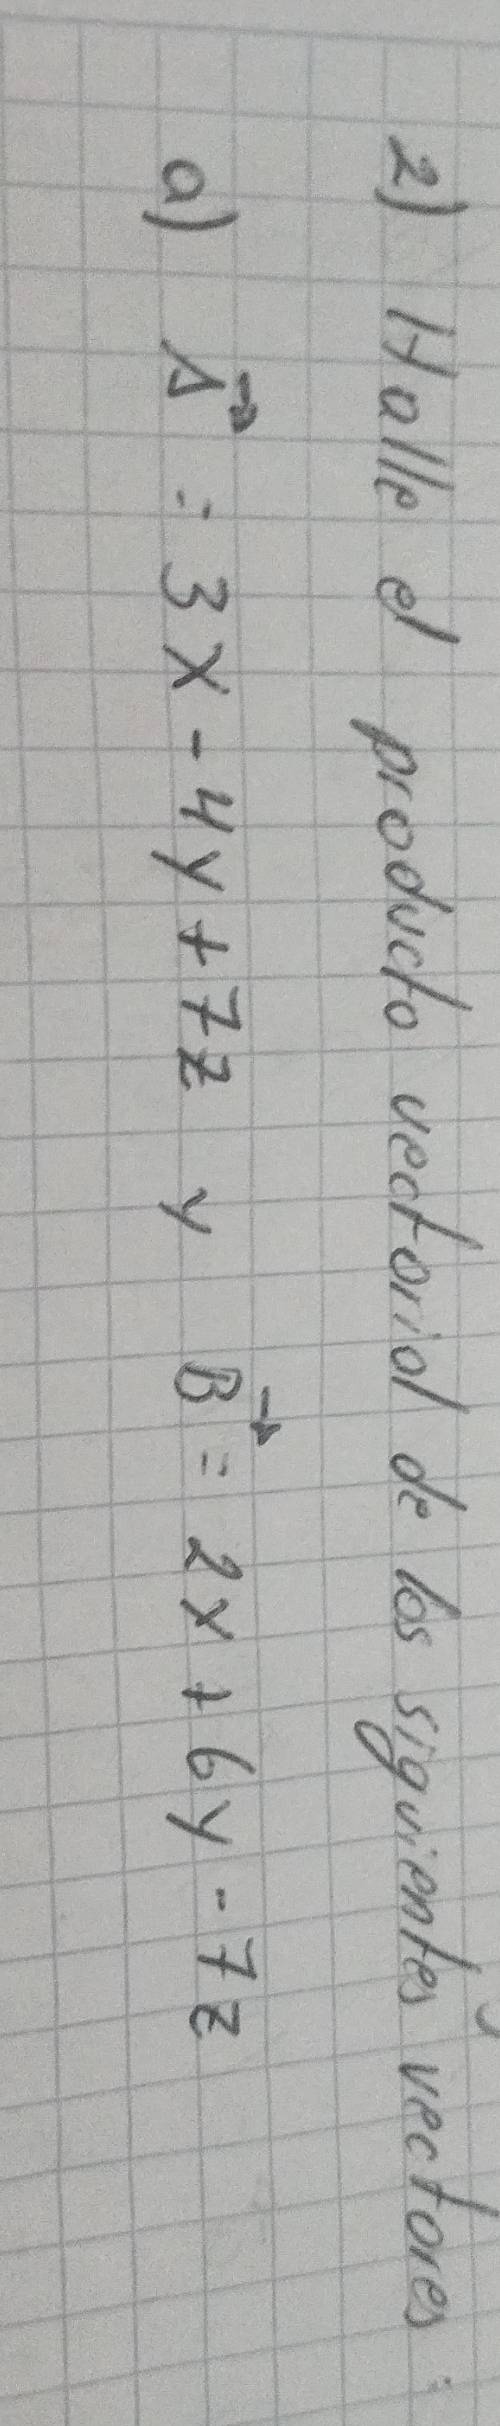 2) Halle el producto vectorial de los siguientes vectores:
a) A⃗ = 3x - 4y + 7z y B⃗ = 2x + 6y - 7z